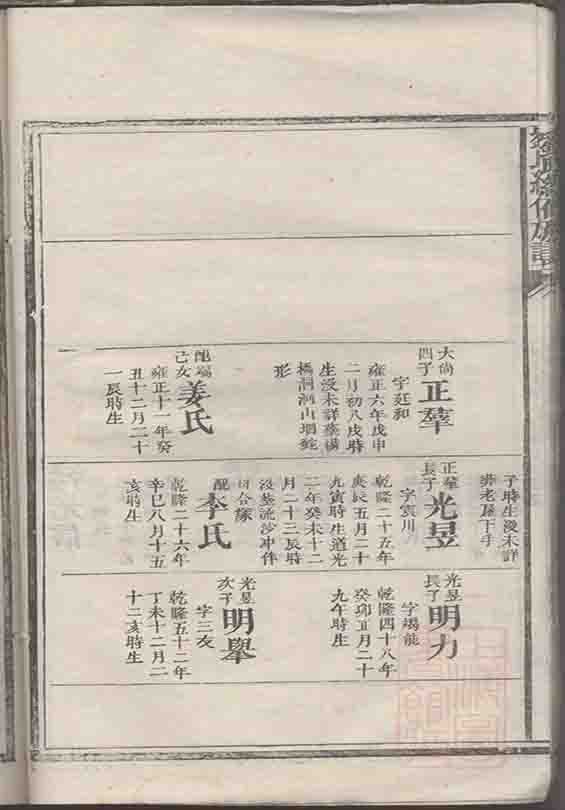 大尚
四子
正鞏
字廷和
雍正六年戊申
二月初八戌時
生沒未詳葬楊
橋洞洞山塅蛇
形
配端
己女
姜氏
雍正十一年癸
丑十二月二十
一辰時生
子時生沒未詳
葬老屋下手
正鞏
長子
光昱
字雲川
乾隆二十五年
庚辰五月二十
九寅時生道光
二年癸未十二
月二十三辰時
沒葬流沙冲伴
配
李氏
乾隆二十六年
辛巳八月十五
亥時生
光昱
長子
明力
字竭能
乾隆四十八年
癸卯正月二十
九午時生
光昱
次子
明舉
字三友
乾隆五十二年
丁未十二月二
十二亥時生